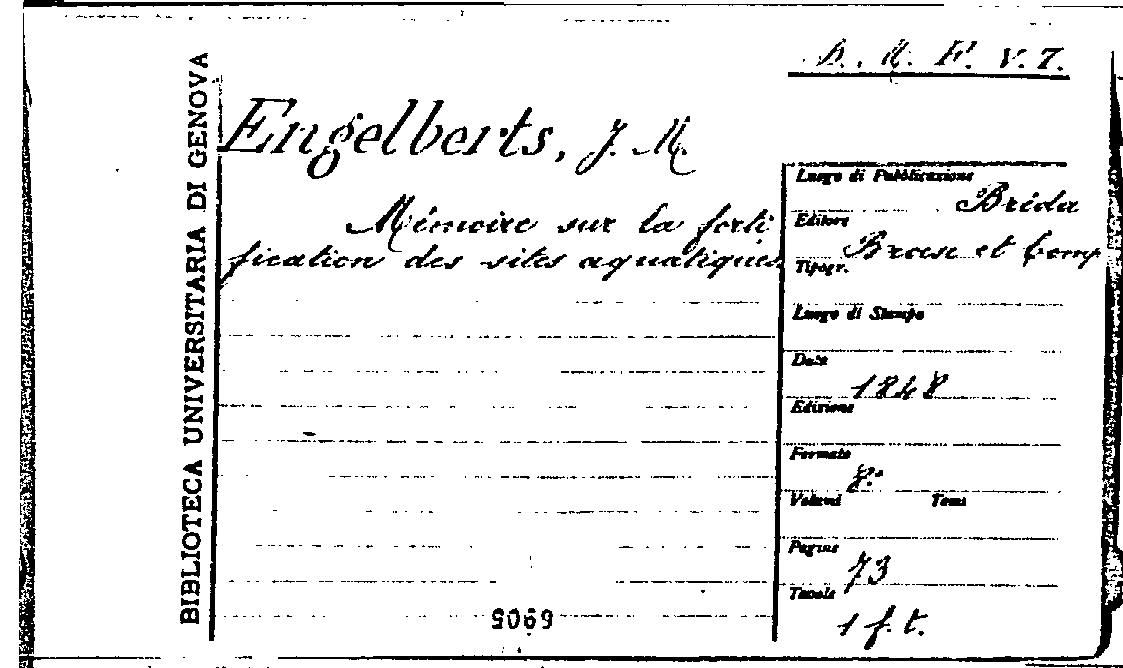 BIBLIOTECA UNIVERSITARIA DI GENOVA
F. V. 7.
Engelberts, J. M.
Mémoire sur la forti
fication des sites aquatiques
Luogo di Pubblicazione
Bréda
Editore
Broese et Comp
Tipogr.
Luogo di Stampa
Data
1848
Edizione
Formato
8.°
Volumi Tomi
Pagine
73
Tavole
1 f. t.